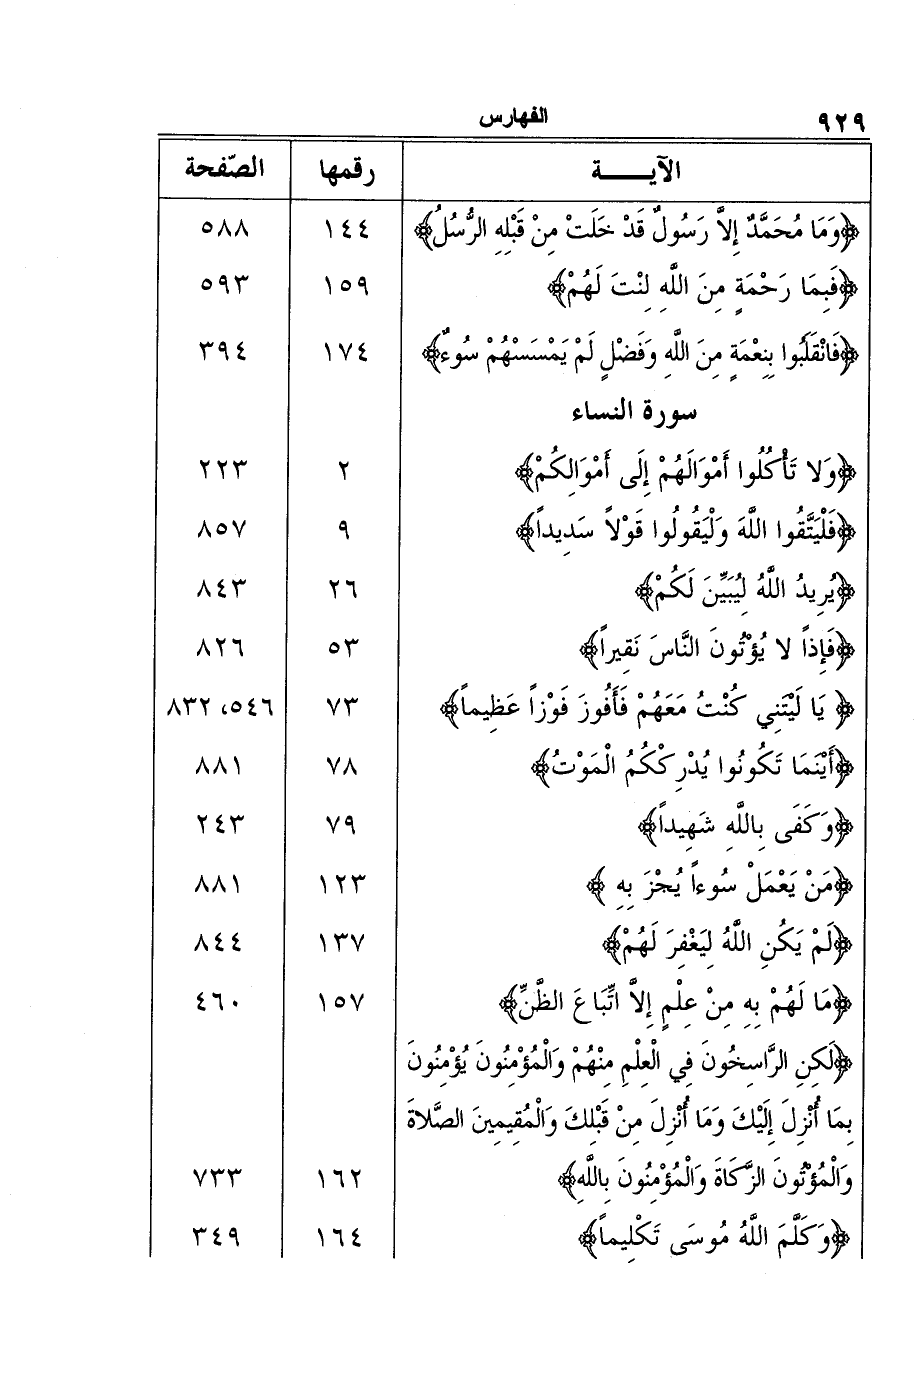 ٩٢٩ الفهارس
الآيـــــة رقمها الصّفحة
﴿وَمَا مُحَمَّدٌ إِلاَّ رَسُولٌ قَدْ خَلَتْ مِنْ قَبْلِهِ الرُّسُلُ﴾ ١٤٤ ٥٨٨
﴿فَبِمَا رَحْمَةٍ مِنَ اللَّهِ لِنْتَ لَهُمْ﴾ ١٥٩ ٥٩٣
﴿فَانْقَلَبُوا بِنِعْمَةٍ مِنَ اللَّهِ وَفَضْلٍ لَمْ يَمْسَسْهُمْ سُوءٌ﴾ ١٧٤ ٣٩٤
سورة النساء
﴿وَلا تَأْكُلُوا أَمْوَالَهُمْ إِلَى أَمْوَالِكُمْ﴾ ٢ ٢٢٣
﴿فَلْيَتَّقُوا اللَّهَ وَلْيَقُولُوا قَوْلاً سَدِيداً﴾ ٩ ٨٥٧
﴿يُرِيدُ اللَّهُ لِيُبَيِّنَ لَكُمْ﴾ ٢٦ ٨٤٣
﴿فَإِذاً لا يُؤْتُونَ النَّاسَ نَقِيراً﴾ ٥٣ ٨٢٦
﴿ يَا لَيْتَنِي كُنْتُ مَعَهُمْ فَأَفُوزَ فَوْزاً عَظِيماً﴾ ٧٣ ٥٤٦، ٨٣٢
﴿أَيْنَمَا تَكُونُوا يُدْرِكْكُمُ الْمَوْتُ﴾ ٧٨ ٨٨١
﴿وَكَفَى بِاللَّهِ شَهِيداً﴾ ٧٩ ٢٤٣
﴿مَنْ يَعْمَلْ سُوءاً يُجْزَ بِهِ ﴾ ١٢٣ ٨٨١
﴿لَمْ يَكُنِ اللَّهُ لِيَغْفِرَ لَهُمْ﴾ ١٣٧ ٨٤٤
﴿مَا لَهُمْ بِهِ مِنْ عِلْمٍ إِلاَّ اتِّبَاعَ الظَّنِّ﴾ ١٥٧ ٤٦٠
﴿لَكِنِ الرَّاسِخُونَ فِي الْعِلْمِ مِنْهُمْ وَالْمُؤْمِنُونَ يُؤْمِنُونَ
بِمَا أُنْزِلَ إِلَيْكَ وَمَا أُنْزِلَ مِنْ قَبْلِكَ وَالْمُقِيمِينَ الصَّلاةَ
وَالْمُؤْتُونَ الزَّكَاةَ وَالْمُؤْمِنُونَ بِاللَّهِ﴾ ١٦٢ ٧٣٣
﴿وَكَلَّمَ اللَّهُ مُوسَى تَكْلِيماً﴾ ١٦٤ ٣٤٩